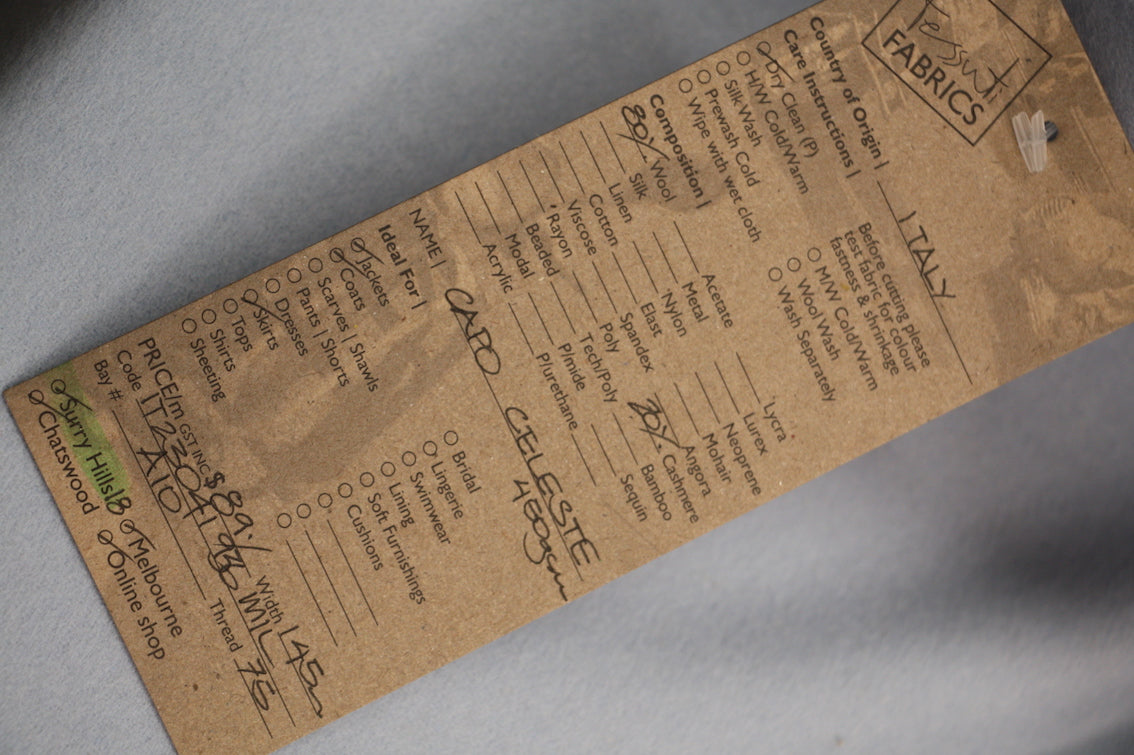 Tessuti
FABRICS
Country of Origin | ITALY
Care Instructions |
Dry Clean (P)
H/W Cold/Warm
Silk Wash
Prewash Cold
Wipe with wet cloth
Before cutting please
test fabric for colour
fastness & shrinkage
M/W Cold/Warm
Wool Wash
Wash Separately
Composition |
80% Wool
Silk
Linen
Cotton
Viscose
Rayon
Beaded
Modal
Acrylic
Acetate
Metal
Nylon
Elast
Spandex
Poly
Tech/Poly
P/mide
P/urethane
Lycra
Lurex
Neoprene
Mohair
Angora
20% Cashmere
Bamboo
Sequin
NAME | CAPO CELESTE
460gsm
Ideal For |
Jackets
Coats
Scarves | Shawls
Pants | Shorts
Dresses
Skirts
Tops
Shirts
Sheeting
Bridal
Lingerie
Swimwear
Lining
Soft Furnishings
Cushions
PRICE/m GST INC $89 Width 145
Code MIL 75
Bay #: A10 Thread
Surry Hills
Chatswood
Melbourne
Online shop